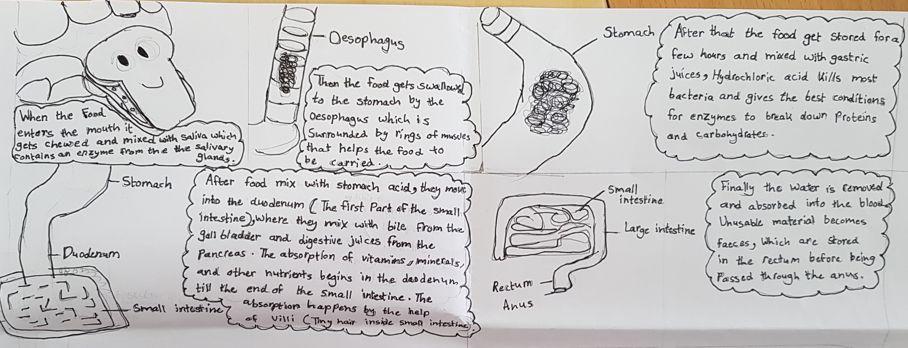 When the Food
enters the mouth it
gets chewed and mixed with Saliva which
contains an enzyme from the the salivary
glands.
Oesophagus
Then the food gets swallowed
to the stomach by the
Oesophagus which is
Surrounded by rings of muscles
that helps the food to
be carried.
Stomach
After that the food get stored for a
few hours and mixed with gastric
juices, Hydrochloric acid kills most
bacteria and gives the best conditions
for enzymes to break down Proteins
and carbohydrates.
Stomach
Duodenum
Small intestine
After food mix with stomach acid, they move
into the duodenum (The first Part of the small
intestine), where they mix with bile from the
gall bladder and digestive juices from the
Pancreas. The absorption of vitamins, minerals,
and other nutrients begins in the deodenum
till the end of the small intestine. The
absorption happens by the help
of villi (Tiny hair inside small intestine
Small
intestine
Large intestine
Rectum
Anus
Finally the water is removed
and absorbed into the blood.
Unusable material becomes
faeces, which are stored
in the rectum before being
Passed through the anus.